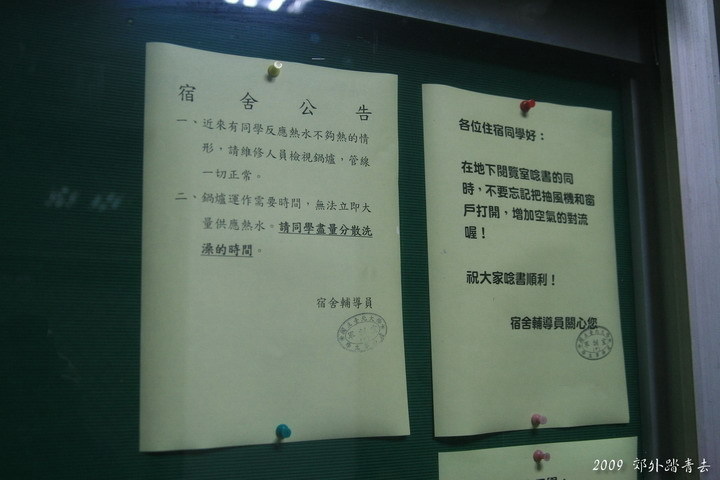 宿舍公告
一、近來有同學反應熱水不夠熱的情
形，請維修人員檢視鍋爐，管線
一切正常。
二、鍋爐運作需要時間，無法立即大
量供應熱水。請同學盡量分散洗
澡的時間。
宿舍輔導員
各位住宿同學好：
在地下閱覽室唸書的同
時，不要忘記把抽風機和窗
戶打開，增加空氣的對流
喔！
祝大家唸書順利！
宿舍輔導員關心您
2009 郊外踏青去